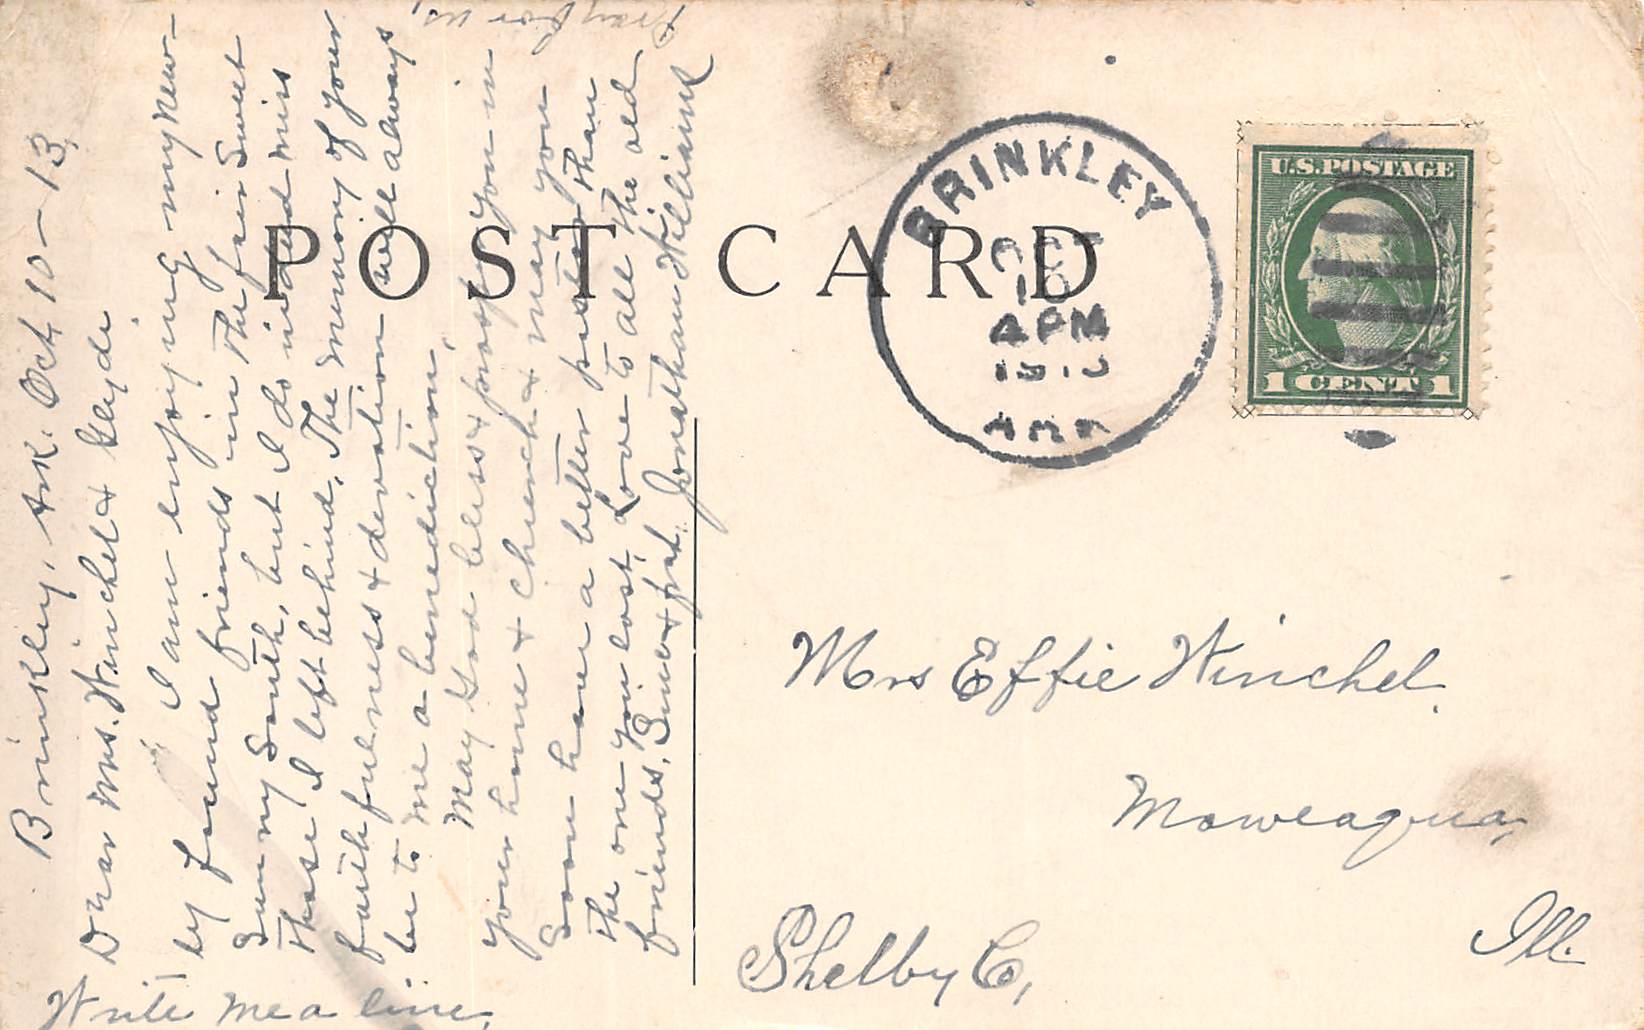 POST CARD
BRINKLEY
OCT
10
4 PM
1913
ARK
U.S. POSTAGE
1 CENT 1
Brinkley, Ark. Oct 10 - 13,
Dear Mrs. Winchel & Clyde
I am enjoying my new-
ly found friends in the fair sweet
Sunny South, but I do indeed miss
those I left behind. The memory of your
faithfulness & devotion will always
be to me a benediction,
May God bless & prosper you in
your home & church & may you
soon have a better pastor than
the one you lost. Love to all the old
friends. Sincerely, Jonathan Williams
pray for us,
Write me a line,
Mrs Effie Winchel.
Moweaqua,
Ill.
Shelby Co,